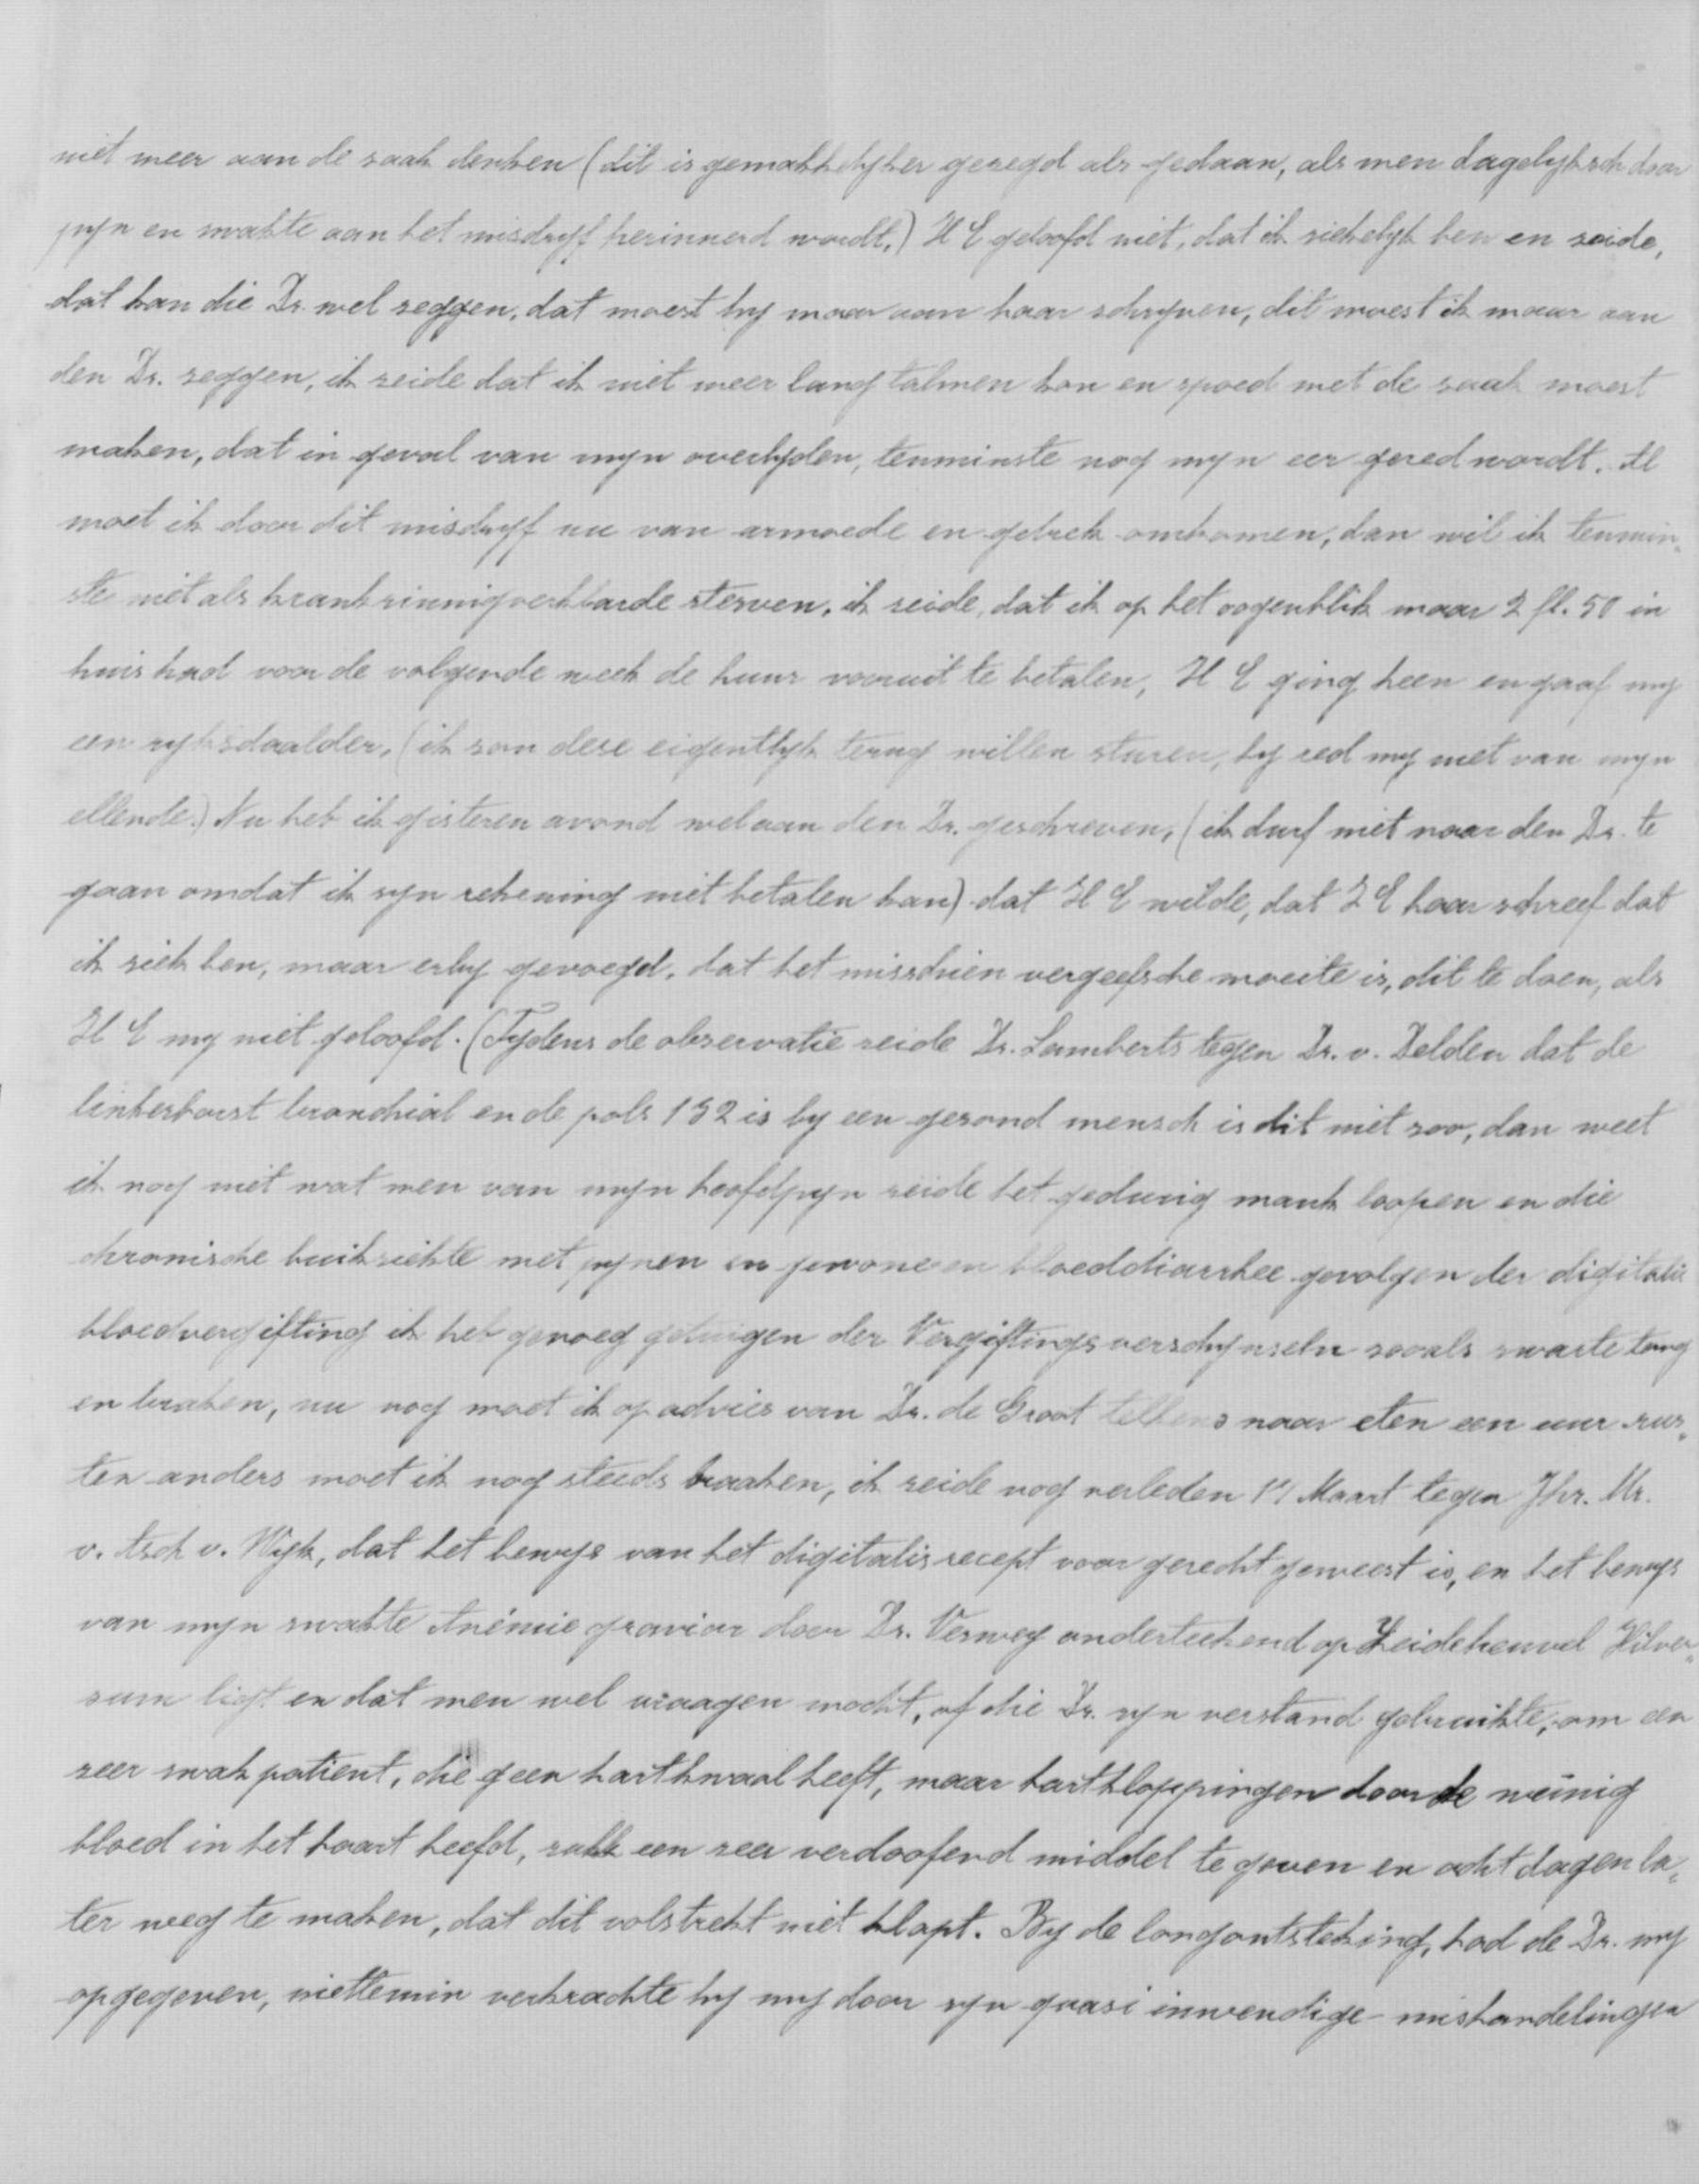 niet meer aan de zaak denken (dit is gemakkelyker gezegd als gedaan, als men dagelyksch door
pyn en zwakte aan het misdryf herinnerd wordt.) H E geloofd niet, dat ik ziekelyk ben en zeide,
dat kan die Dr. wel zeggen, dat moest hy maar aan haar schryven, dit moest ik maar aan
den Dr. zeggen, ik zeide dat ik niet meer lang talmen kon en spoed met de zaak moest
maken, dat in geval van myn overlyden, tenminste nog myn eer gered wordt. Al
moet ik door dit misdryf nu van armoede en gebrek omkomen, dan wil ik tenmin„
ste niet als krankzinnigverklaarde sterven. ik zeide, dat ik op het oogenblik maar 2 fl. 50 in
huis had voor de volgende week de huur vooruit te betalen, H E ging heen en gaaf my
een ryksdaalder, (ik zou deze eigentlyk terug willen sturen, hy red my niet van myn
ellende.) Nu heb ik gisteren avond wel aan den Dr. geschreven, (ik durf niet naar den Dr. te
gaan omdat ik zyn rekening niet betalen kan) dat H E wilde, dat Z E haar schreef dat
ik ziek ben, maar erby gevoegd, dat het misschien vergeefsche moeite is, dit te doen, als
H E my niet geloofd. (Tydens de observatie zeide Dr. Lamberts tegen Dr. v. Delden dat de
linkerborst bronchial en de pols 132 is by een gezond mensch is dit niet zoo, dan weet
ik nog niet wat men van myn hoofdpyn zeide het gedurig mank loopen en die
chronische buikziekte met pynen en gewone en bloeddiarrhee gevolgen der digitalis
bloedvergifting ik heb genoeg getuigen der Vergiftingsverschynseln zooals zwarte tong
en braken, nu nog moet ik op advies van Dr. de Groot telkens naar eten een uur rus„
ten anders moet ik nog steeds braaken, ik zeide nog verleden 17 Maart tegen Jhr. Mr.
v. Asch v. Wyk, dat het bewys van het digitalis recept voor gerecht geweest is, en het bewys
van myn zwakte Anémie gravior door Dr. Verwey onderteekend op Heideheuvel Hilver„
sum ligt en dat men wel vraagen mocht, of die Dr. zyn verstand gebruikte, om een
zeer zwak patient, die geen hartkwaal heeft, maar hartkloppingen door de weinig
bloed in het haart heefd, zulk een zeer verdoofend middel te geven en acht dagen la„
ter weg te maken, dat dit volstrekt niet klopt. By de longontsteking, had de Dr. my
opgegeven, niettemin verkrachte hy my door zyn quasi inwendige - mishandelingen